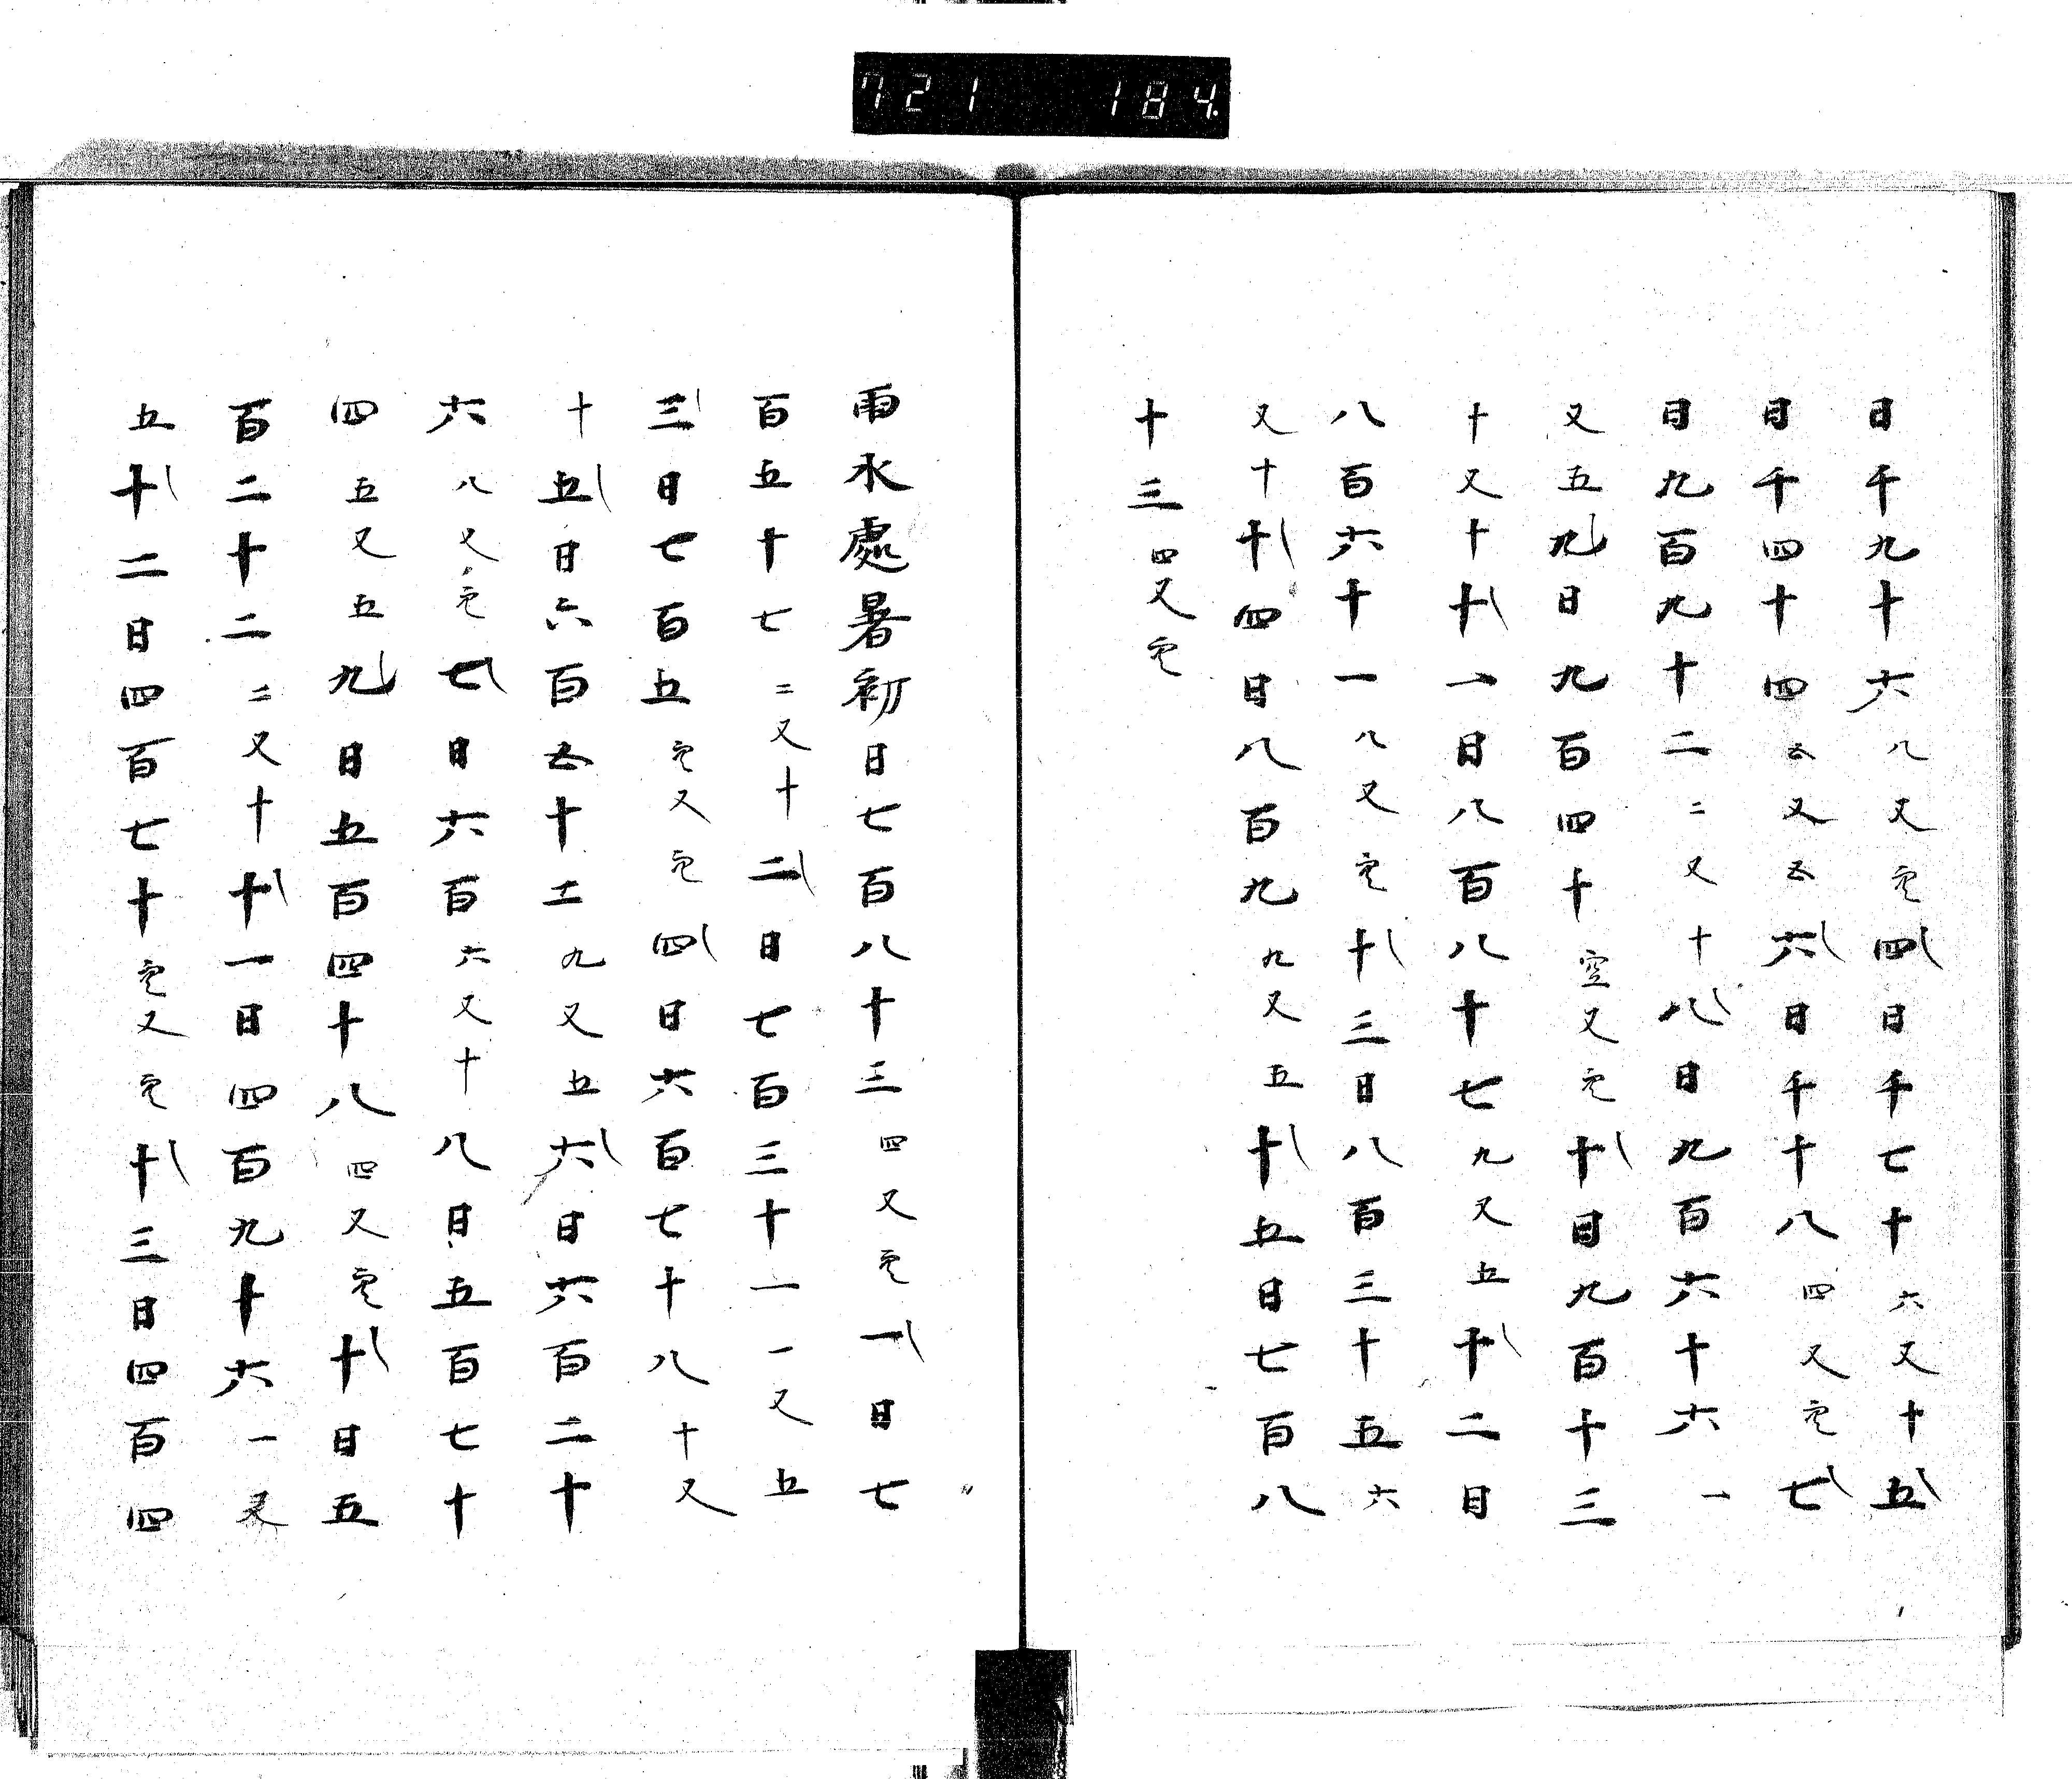 721 184
日千九十六八又空四日千七十六又十五
日千四十四五又五六日千十八四又空七
日九百九十二二又十八日九百六十六一
又五九日九百四十空又空十日九百十三
十又十十一日八百八十七九又五十二日
八百六十一八又空十三日八百三十五六
又十十四日八百九九又五十五日七百八
十三四又空
雨水處暑初日七百八十三四又空一日七
百五十七二又十二日七百三十一一又五
三日七百五空又空四日六百七十八十又
十五日六百五十二九又五六日六百二十
六八又空七日六百六又十八日五百七十
四五又五九日五百四十八四又空十日五
百二十二二又十十一日四百九十六一又
五十二日四百七十空又空十三日四百四